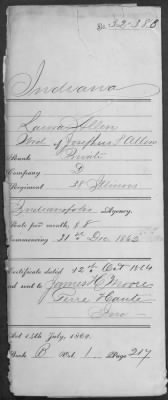 No. 32-380
Indiana
Laura Allen
Wid. of Josephus S Allen
Rank Private
Company D
Regiment 38 Illinois
Indianapolis Agency.
Rate per month, $8
Commencing 31st Dec 1862
Certificate dated 12th Oct 1864
and sent to James H Moore
Terre Haute
Act 14th July, 1862.
Book B Vol. 1 Page 217